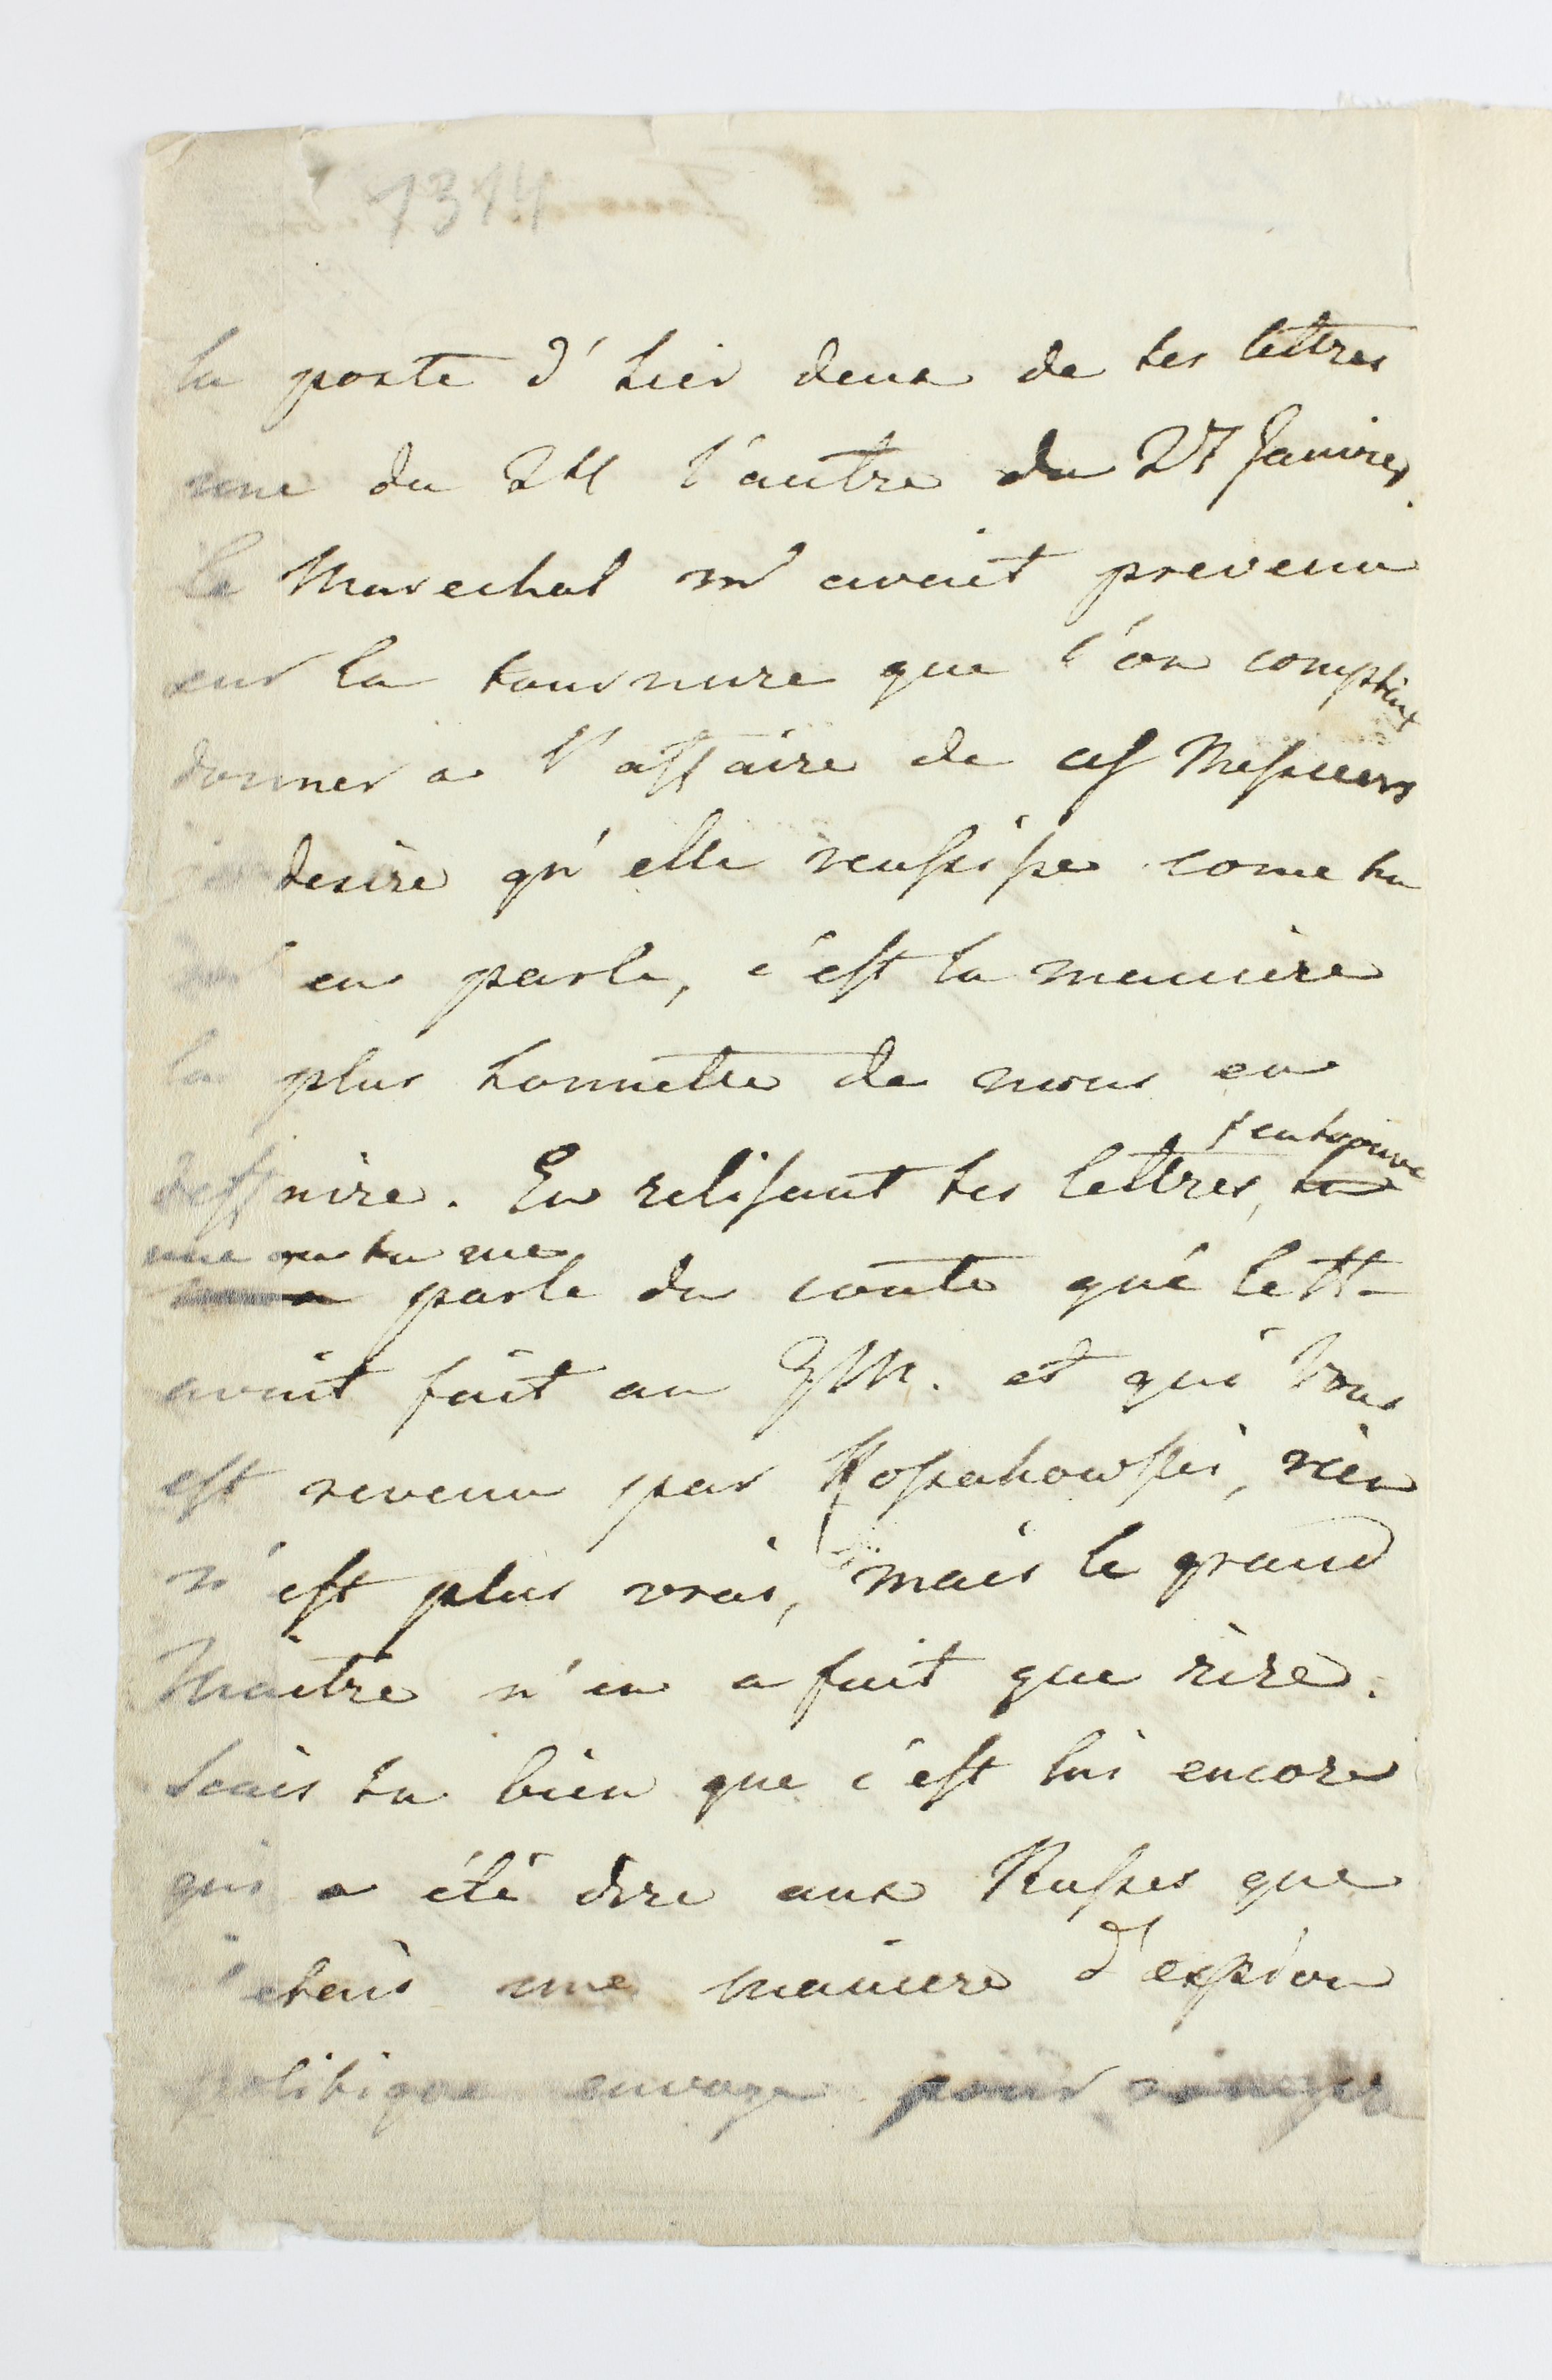 1314
la poste d'hier deux de tes lettres
une du 24 l'autre du 27 Janvier.
le Marechal m'avait prevenu
sur la tournure que l'on comptait
donner a l'affaire de ces Messieurs
desire qu'elle reussisse come tu
en parle, c'est la maniere
la plus honnette de nous en
deffaire. En relisant tes lettres, j'en trouve
une ou tu me
parle du conte que lett-
avait fait au GM. et qui vous
est revenu par Kossakowski, rien
n'est plus vrai, mais le grand
Maitre n'en a fait que rire.
Scais tu bien que c'est lui encore
qui a été dire aux Russes que
j'etais une maniere d'espion
politique envoye pour